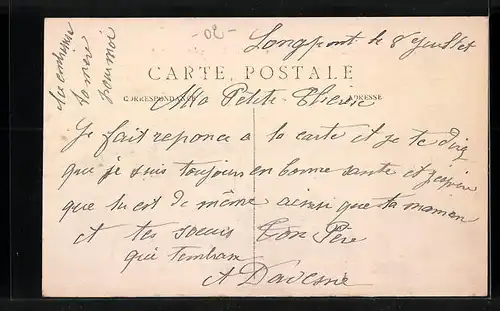 -02-
Longpont le 8 Juillet
tu embrasse
ta mere
pour moi
CARTE POSTALE
CORRESPONDANCE
ADRESSE
Ma Petite Therese
Je fait reponce a ta carte et je te dirq
que je suis toujours en bonne sante et j'espere
que tu est de même ainsi que ta maman
et tes soeurs Ton Père
qui t'embrasse
A Davesne